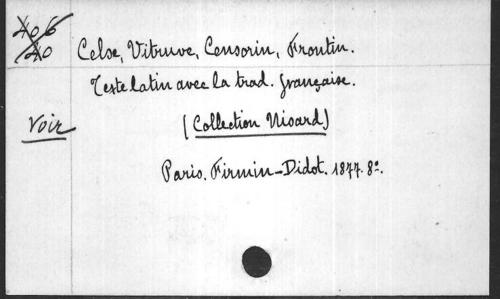 406
40
Celse, Vitruve, Censorin, Frontin.
Texte latin avec la trad. française.
Voir
(Collection Nisard)
Paris. Firmin-Didot. 1877. 8º.